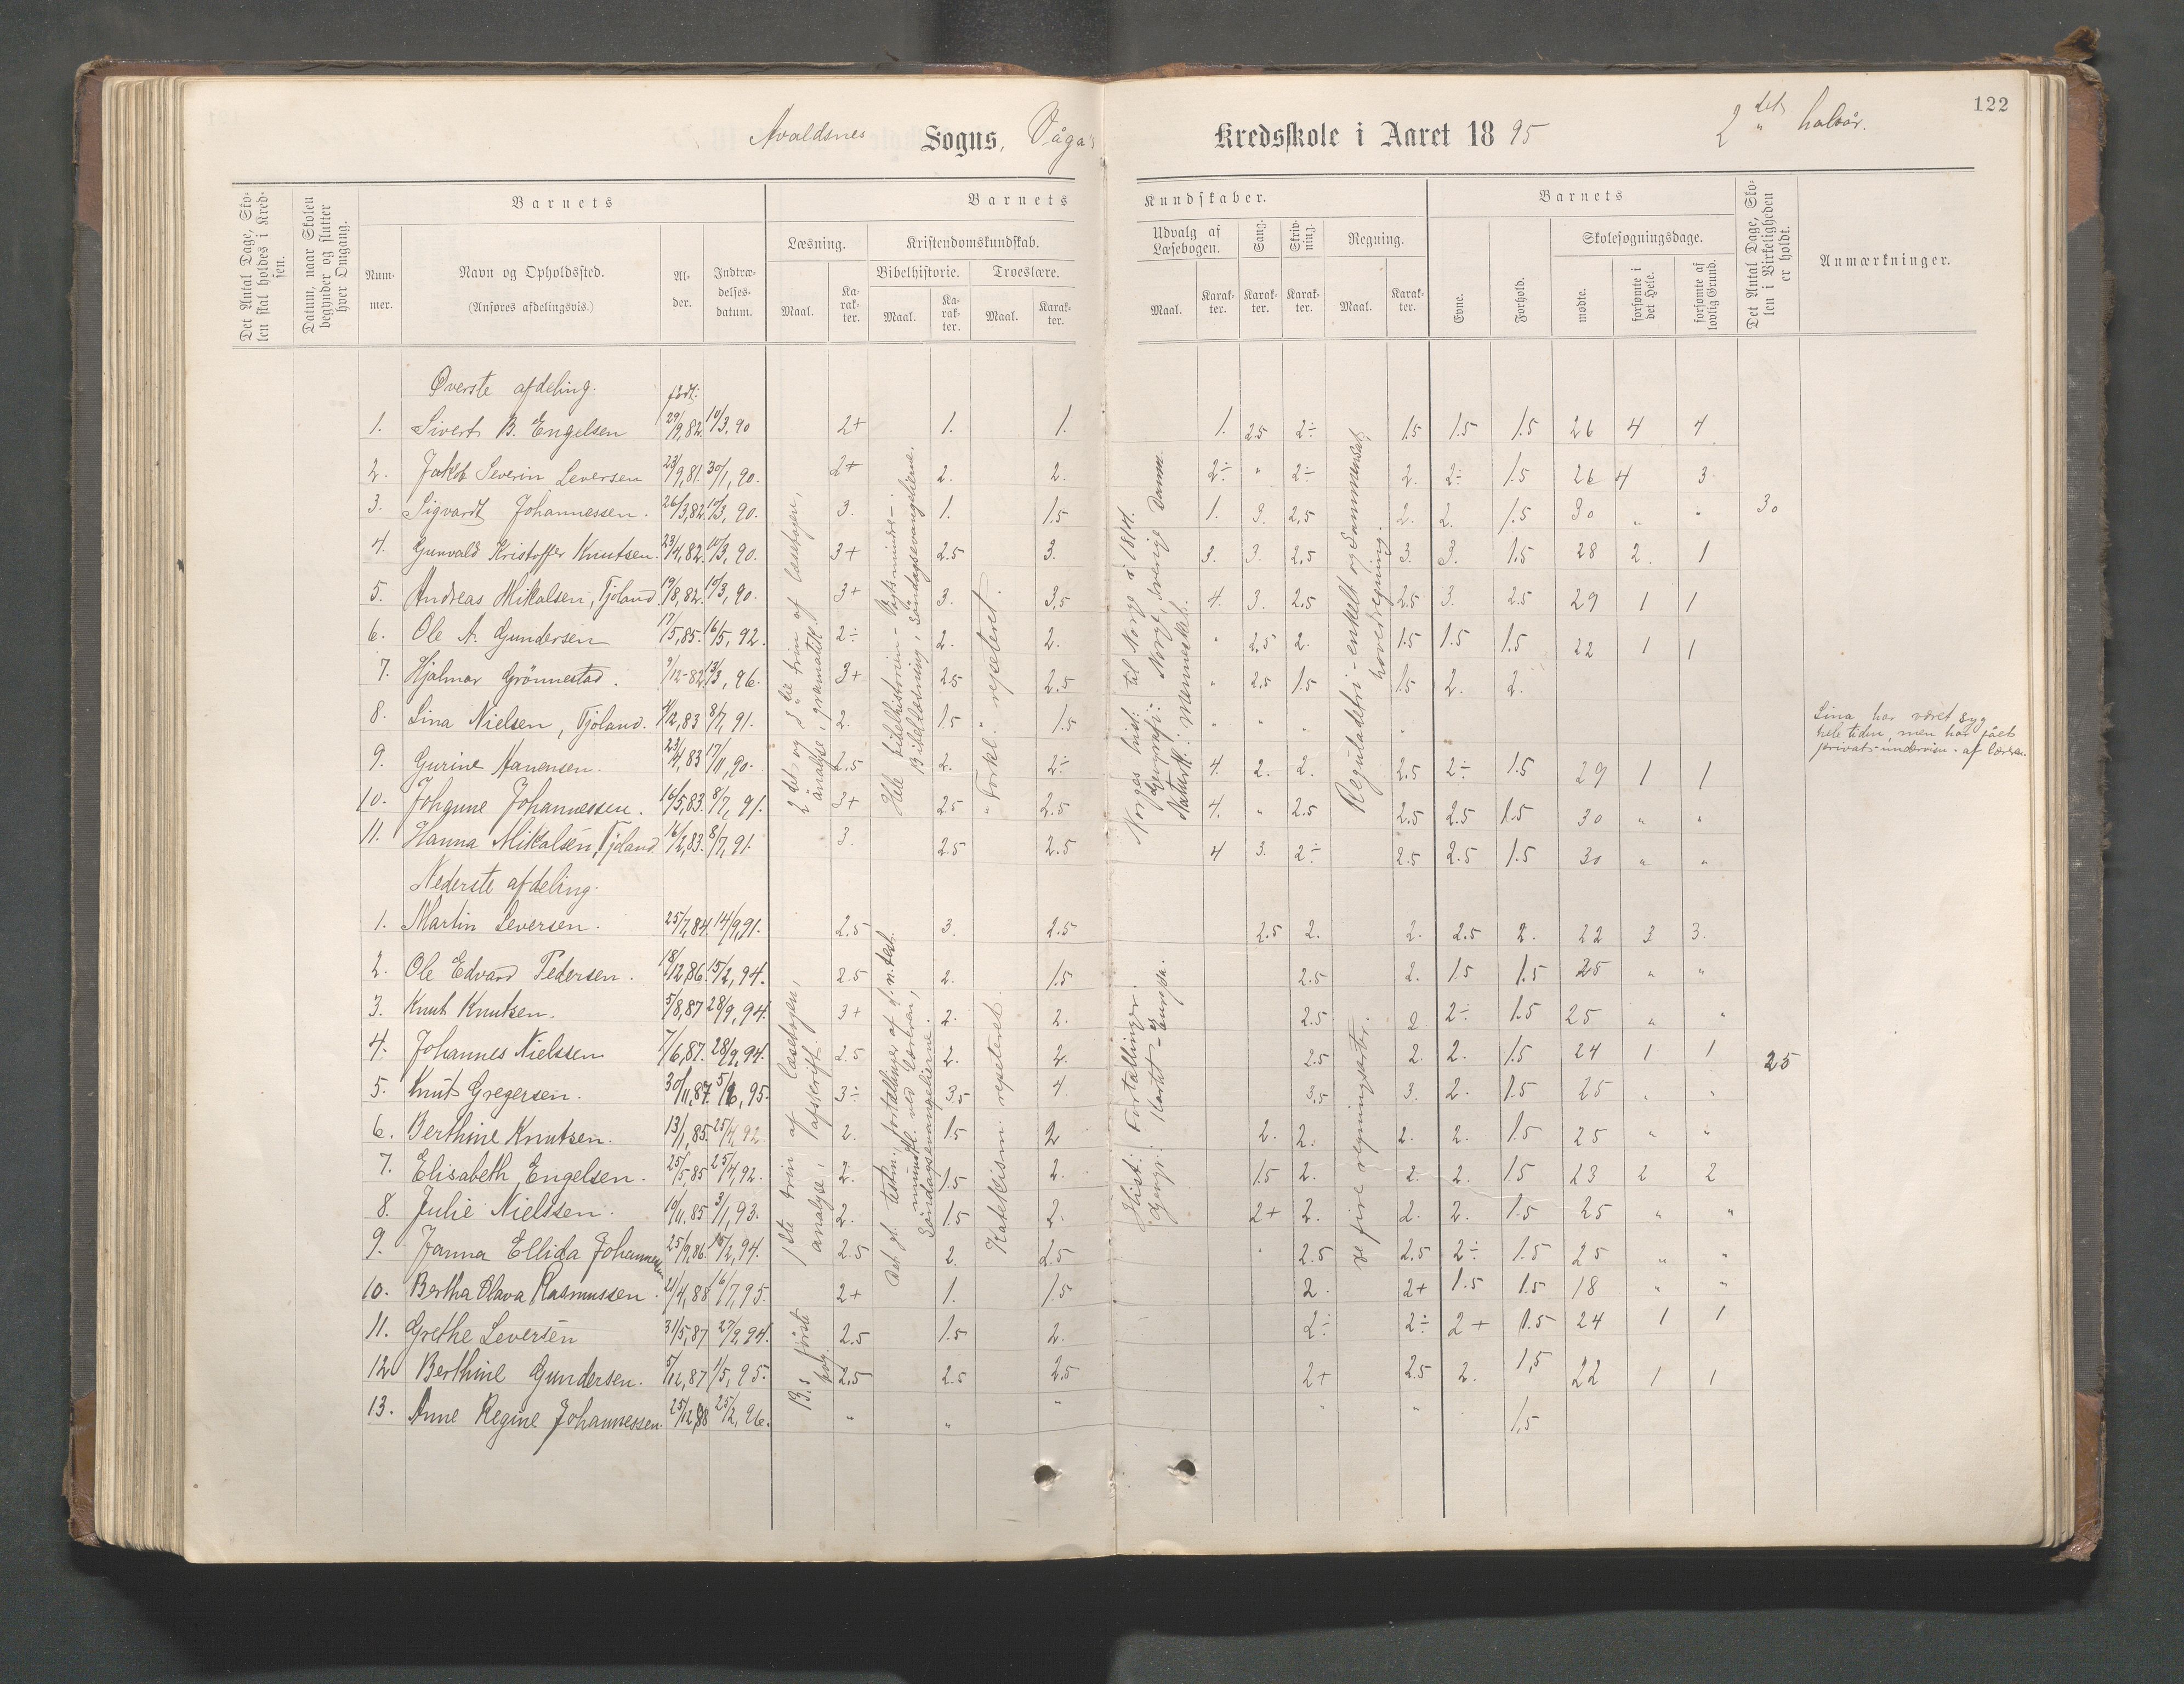 122
Avaldsnes Sogns, Våga's Kredsskole i Aaret 1895 2det halvår.
Det Antal Dage, Skolen skal holdes i Kredsen.
Datum, naar Skolen begynder og slutter hver Omgang.
Barnets
Barnets Kundskaber.
Barnets
Det Antal Dage, Skolen i Virkeligheden er holdt.
Anmærkninger.
Nummer.
Navn og Opholdssted.
(Anføres afdelingsvis.)
Alder.
Indtrædelsesdatum.
Læsning.
Kristendomskundskab.
Bibelhistorie.
Troeslære.
Udvalg af Læsebogen.
Sang.
Skrivning.
Regning.
Evne.
Forhold.
Skolesøgningsdage.
Maal. Karakter. Maal. Karakter. Maal. Karakter. Maal. Karakter. Karakter. Karakter. Maal. Karakter.
mødte.
forsømte i det Hele.
forsømte af lovlig Grund.
Øverste afdeling. født:
1. Sivert B. Engelsen 29/9,82. 10/3,90 2+ 1. 1. 1. 2.5 2÷ 1.5 1.5 1.5 26 4 4
2. Jakob Severin Leversen 23/9,81. 30/1,90. 2+ 2. 2. 2÷ " 2÷ 2. 2÷ 1.5 26 4 3
3. Sigvardt Johannessen. 26/3,82. 10/3,90. 3. 1. 1.5 1. 3. 2.5 2. 2. 1.5 30 " " 30
4. Gunvald Kristoffer Knutsen. 23/4,82. 10/3,90. 3+ 2.5 3. 3. 3. 2.5 3. 3. 1.5 28 2. 1
5. Andreas Mikalsen, Tjøland. 19/8,82. 10/3,90. 3+ 3. 3.5 4. 3. 2.5 2.5 3. 2.5 29 1 1
6. Ole A. Gundersen 17/5,85. 16/5,92. 2÷ 2. 2. " 2.5 2. 1.5 1.5 1.5 22 1 1
7. Hjalmar Grönnestad. 9/12-82. 13/3,96. 3+ 2.5 2.5 " 2.5 1.5 1.5 2. 2.
8. Lina Nielsen, Tjøland. 4/12,83 8/7,91. 2. 1.5 1.5 " " " "
Lina har været syg
hele tiden, men har fået
privat-undervisn. af læreren.
9. Gurine Hanensen. 23/4,83 17/11,90. 2.5 2. 2÷ 4. 2. 2. 2.5 2÷ 1.5 29 1 1
10. Johanne Johannessen. 16/5,83. 8/7,91. 3+ 2.5 2.5 4. " 2.5 2.5 2.5 1.5 30 " "
11. Hanna Mikalsen, Tjøland. 16/2,83. 8/7,91. 3. 2.5 2.5 4 3. 2÷ 2.5 2.5 1.5 30 " "
2det og 3die trin af læsebogen,
analyse, grammatik
Hele bibelhistorien
Bibellæsning, Söndagsevangelierne.
"Forkl." repeteret.
Norges hist. til Norge i 1814.
Geografi: Norge, Sverige Danm.
Naturk.: Mennesket.
Reguladetri - enkelt og sammensat,
hovedregning.
Nederste afdeling.
1. Martin Leversen. 25/7,84. 14/9,91. 2.5 3. 2.5 2.5 2. 2. 2.5 2. 22 3 3.
2. Ole Edvard Pedersen. 18/12,86. 15/2,94. 2.5 2. 1.5 2.5 2. 1.5 1.5 25 " "
3. Knut Knutsen. 5/8,87 28/9,94. 3+ 2. 2. 2.5 2 2÷ 1.5 25 " "
4. Johannes Nielssen 7/6,87. 28/9,94. 2.5 2. 2. 2.5 2. 2. 1.5 24 1 1 25
5. Knut Gregersen. 30/11,87. 5/6,95. 3÷ 3.5 4. 3.5 3. 2. 1.5 25 " "
6. Berthine Knutsen. 13/1,85. 25/4,92 2. 1.5 2 2. 2. 2. 2. 1.5 25 " "
7. Elisabeth Engelsen. 25/5,85 25/4,92. 2. 1.5 2. 1.5 2. 2. 2. 1.5 23 2 2
8. Julie Nielssen. 10/11,85 3/1,93. 2. 1.5 2. 2+ 2. 2. 2. 1.5 25 " "
9. Janna Ellida Johannessen 25/9,86. 15/2,94. 2.5 2. 2.5 " 2.5 2.5 2÷ 1.5 25 " "
10. Bertha Olava Rasmussen. 21/4,88 16/7,95. 2+ 1. 1.5 2. 2+ 1.5 1.5 18 " "
11. Grethe Leversen 31/5,87 27/2,94. 2.5 1.5 2. 2÷ 2÷ 2+ 1.5 24 1 1
12 Berthine Gundersen. 5/12,87 1/5,95. 2.5 2.5 2.5 2+ 2.5 2. 1,5 22 1 1
13. Anne Regine Johannessen. 25/12,88 25/2,96. " " " " " 1,5
1ste trin af læsebogen,
analyse, afskrift.
B.s første
Det gl. testm., fortællinger af d. n. test.
mundtl. ved læreren,
Söndagsevangelierne.
Katekism. repeteret.
Hist: Fortællinger.
Geogr: Kartet - Europa.
De fire regningsarter.